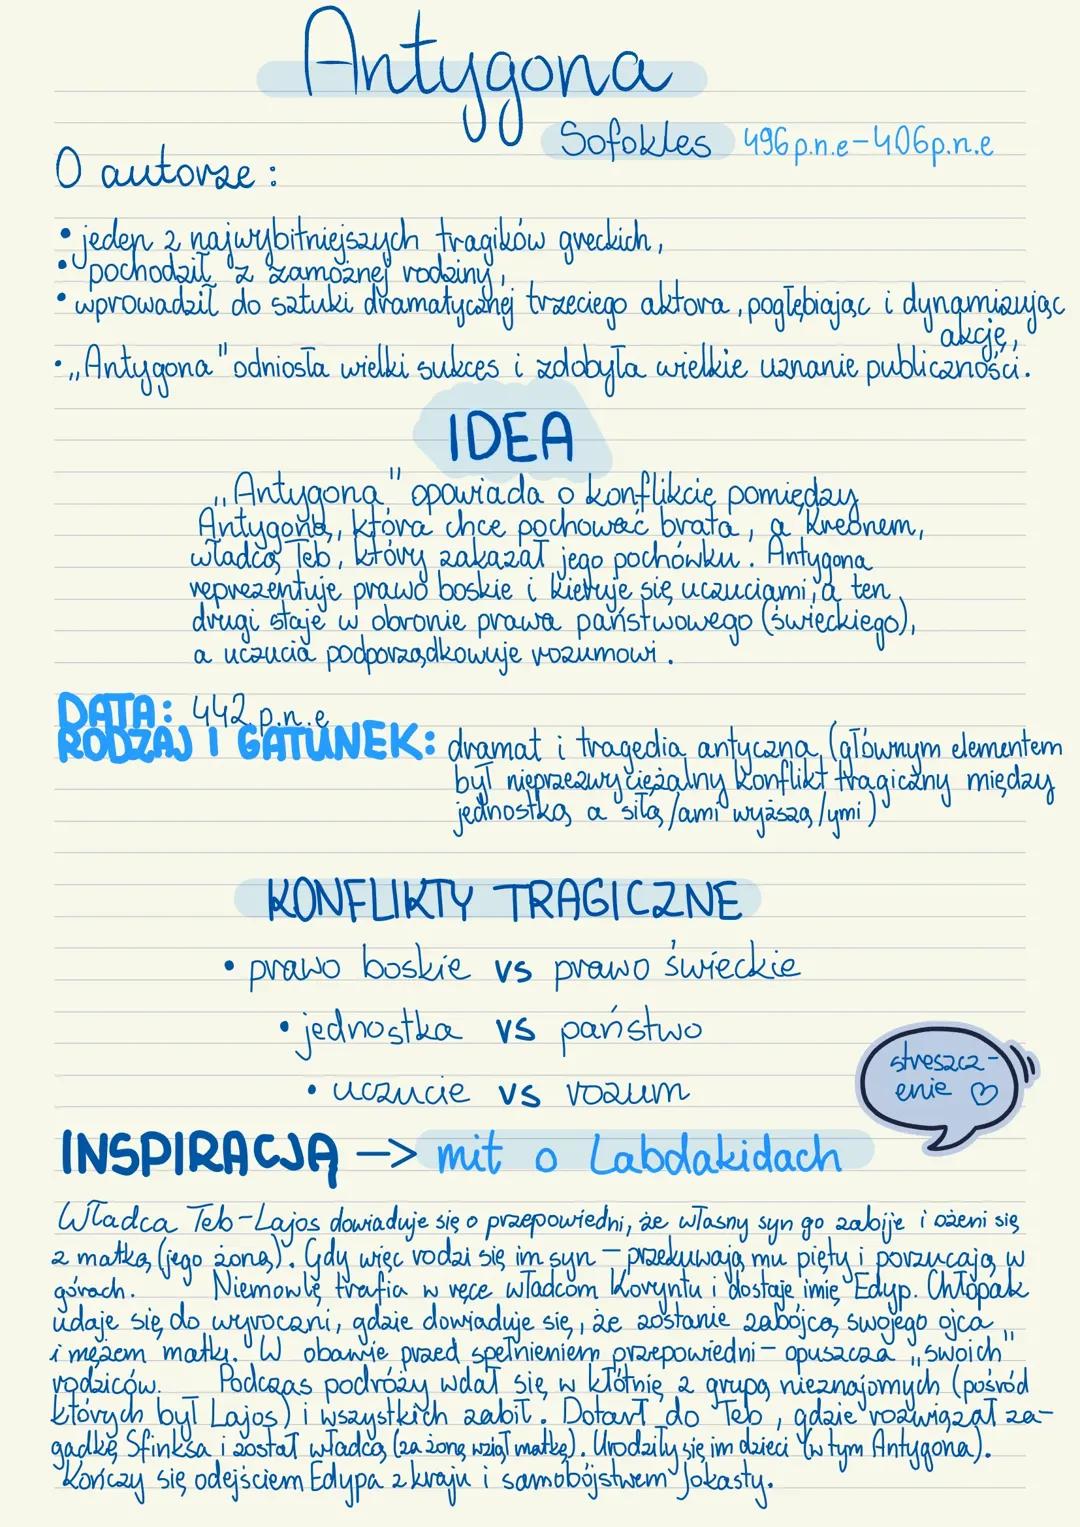 Antygona
Sofokles 496p.n.e-406p.n.e
O autorze:
• jeden z najwybitniejszych tragików greckich,
• pochodził z zamożnej rodziny,
• wprowadził do sztuki dramatycznej trzeciego aktora, pogłębiając i dynamizując
akcję,
• „Antygona" odniosła wielki sukces i zdobyła wielkie uznanie publiczności.
IDEA
„Antygona" opowiada o konflikcie pomiędzy
Antygoną, która chce pochować brata, a Kreonem,
władcą Teb, który zakazał jego pochówku. Antygona
reprezentuje prawo boskie i kieruje się uczuciami, a ten
drugi staje w obronie prawa państwowego (świeckiego),
a uczucia podporządkowuje rozumowi.
DATA: 442 p.n.e
RODZAJ I GATUNEK: dramat i tragedia antyczna (głównym elementem
był nieprzezwyciężalny konflikt tragiczny między
jednostką a siłą/ami wyższą/ymi)
KONFLIKTY TRAGICZNE
• prawo boskie vs prawo świeckie
• jednostka vs państwo
• uczucie vs rozum
streszcz-
enie
INSPIRACJĄ -> mit o Labdakidach
Władca Teb-Lajos dowiaduje się o przepowiedni, że własny syn go zabije i ożeni się
z matką (jego żoną). Gdy więc rodzi się im syn - przekuwają mu pięty i porzucają w
górach. Niemowlę trafia w ręce władcom Koryntu i dostaje imię Edyp. Chłopak
udaje się do wyroczni, gdzie dowiaduje się, że zostanie zabójcą swojego ojca
i mężem matki. W obawie przed spełnieniem przepowiedni - opuszcza „swoich"
rodziców. Podczas podróży wdał się w kłótnię z grupą nieznajomych (pośród
których był Lajos) i wszystkich zabił. Dotarł do Teb, gdzie rozwiązał za-
gadkę Sfinksa i został władcą (za żonę wziął matkę). Urodziły się im dzieci (w tym Antygona).
Kończy się odejściem Edypa z kraju i samobójstwem Jokasty.